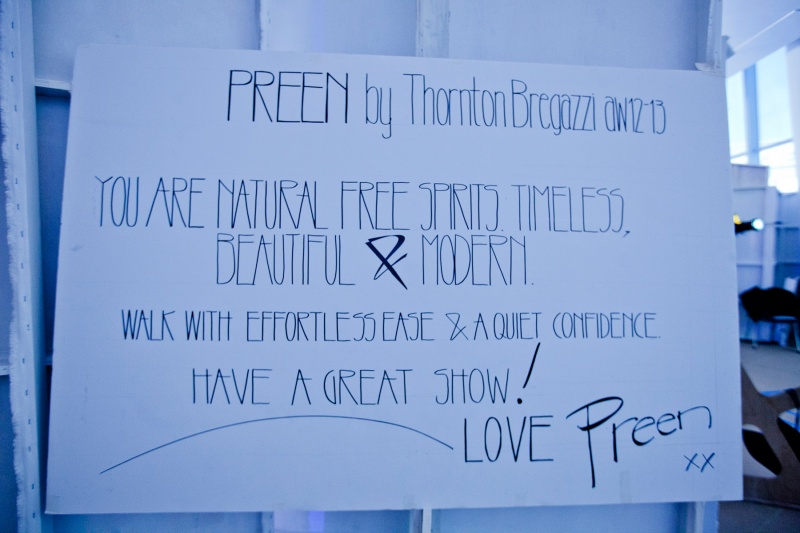 PREEN by Thornton Bregazzi aw12-13
YOU ARE NATURAL FREE SPIRITS. TIMELESS,
BEAUTIFUL & MODERN.
WALK WITH EFFORTLESS EASE & A QUIET CONFIDENCE.
HAVE A GREAT SHOW!
LOVE Preen
xx